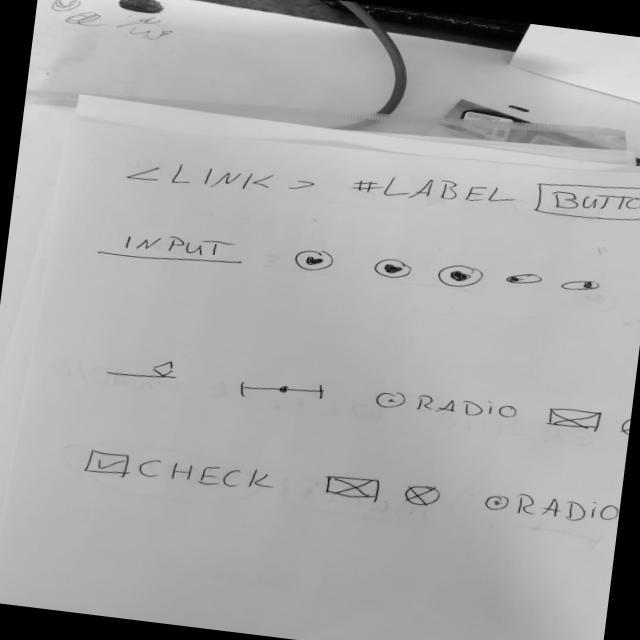 <LINK> #LABEL BUTTO
INPUT
RADIO
CHECK RADIO